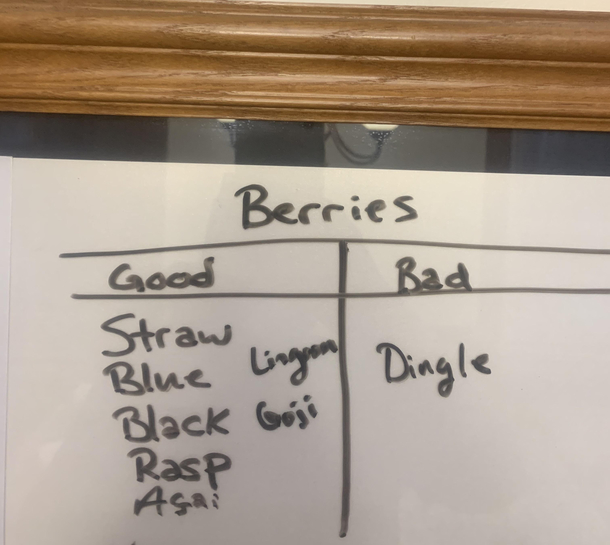 Berries
Good Bad
Straw
Blue Lingon Dingle
Black Goji
Rasp
Açai